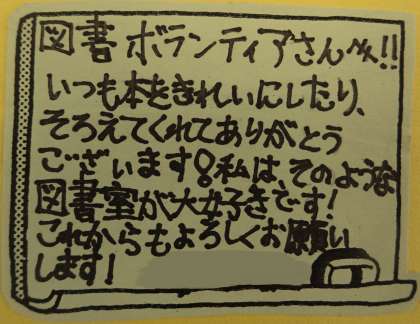 図書ボランティアさんへ!!
いつも本をきれいにしたり、
そろえてくれてありがとう
ございます!私は、そのような
図書室が大好きです!
これからもよろしくお願い
します!